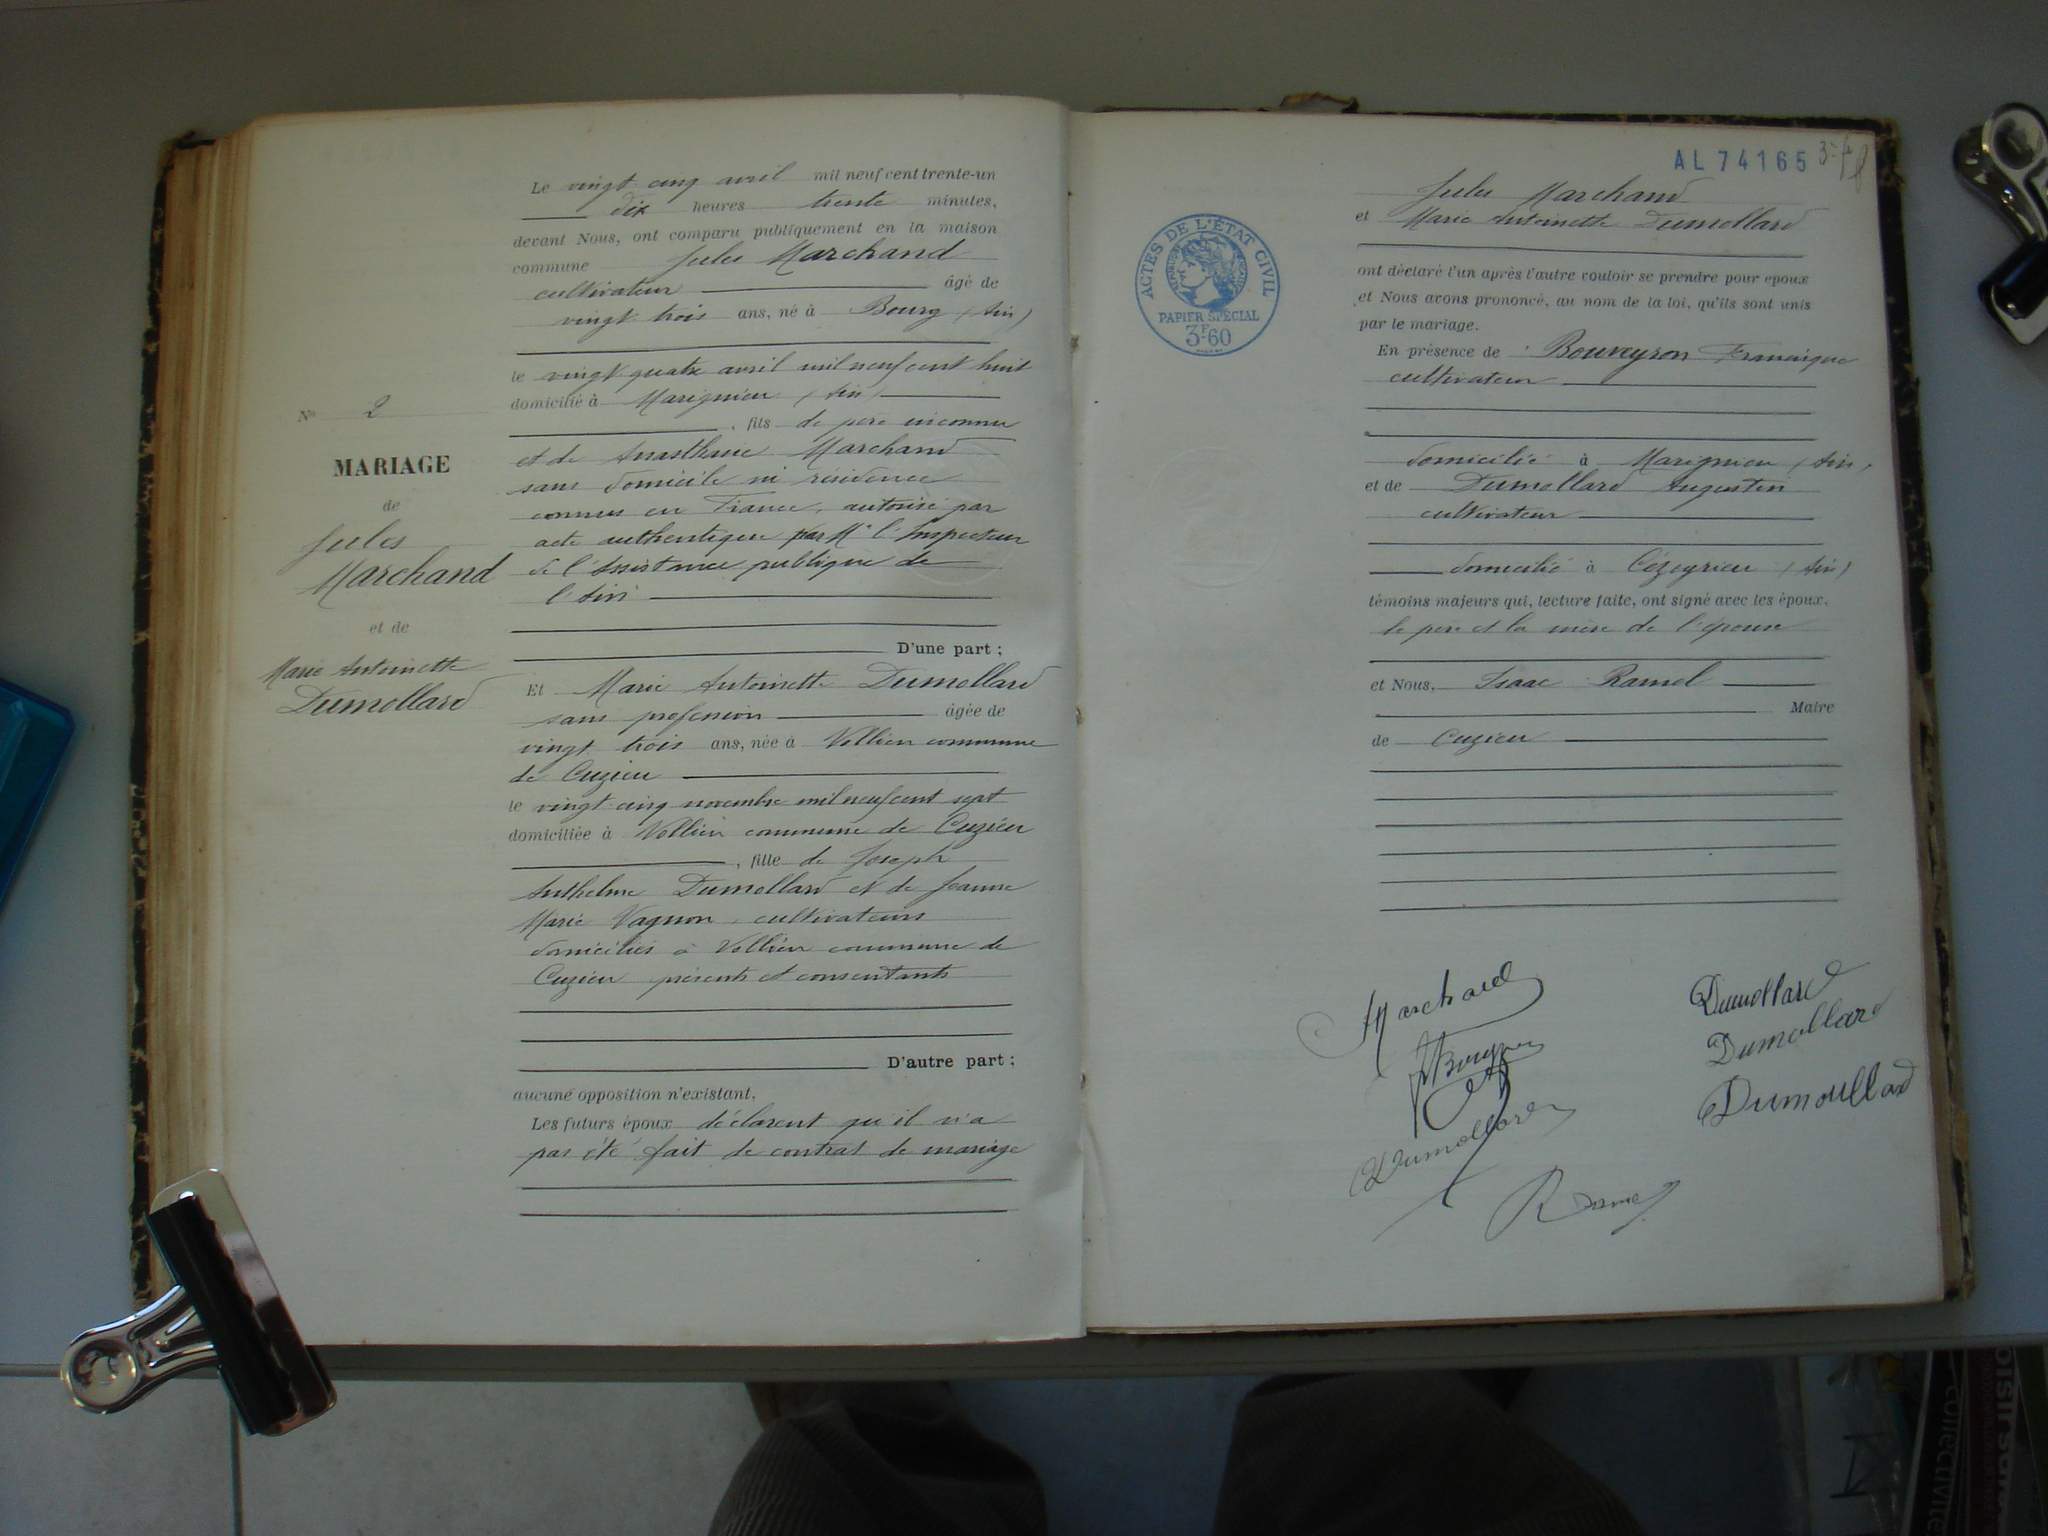 Le vingt cinq avril mil neuf cent trente-un
dix heures trente minutes,
devant Nous, ont comparu publiquement en la maison
commune Jules Marchand
cultivateur âgé de
vingt trois ans, né à Bourg (Ain)
le vingt quatre avril mil neuf cent huit
domicilié à Marignieu (Ain)
, fils de père inconnu
et de Anasthasie Marchand
sans domicile ni résidence
connus en France, autorisé par
acte authentique par Mr l'Inspecteur
de l'Assistance publique de
l'Ain
D'une part ;
Et Marie Antoinette Dumollard
sans profession âgée de
vingt trois ans, née à Vollien commune
de Cuzieu
le vingt cinq novembre mil neuf cent sept
domiciliée à Vollien commune de Cuzieu
, fille de Joseph
Anthelme Dumollard et de Jeanne
Marie Vagnon, cultivateurs
domiciliés à Vollien commune de
Cuzieu présents et consentants
D'autre part ;
aucune opposition n'existant,
Les futurs époux déclarent qu'il n'a
pas été fait de contrat de mariage
No 2
MARIAGE
de
Jules
Marchand
et de
Marie Antoinette
Dumollard
AL 74165
ACTES DE L'ÉTAT CIVIL
PAPIER SPÉCIAL
3F60
Jules Marchand
et Marie Antoinette Dumollard
ont déclaré l'un après l'autre vouloir se prendre pour époux
et Nous avons prononcé, au nom de la loi, qu'ils sont unis
par le mariage.
En présence de Bouveyron Francisque
cultivateur
domicilié à Marignieu (Ain)
et de Dumollard Augustin
cultivateur
domicilié à Cézeyrieu (Ain)
témoins majeurs qui, lecture faite, ont signé avec les époux,
le père et la mère de l'épouse
et Nous, Isaac Ramel
Maire
de Cuzieu
Marchand
Dumollard
Dumollard
Dumoullard
Dumollard
Ramel